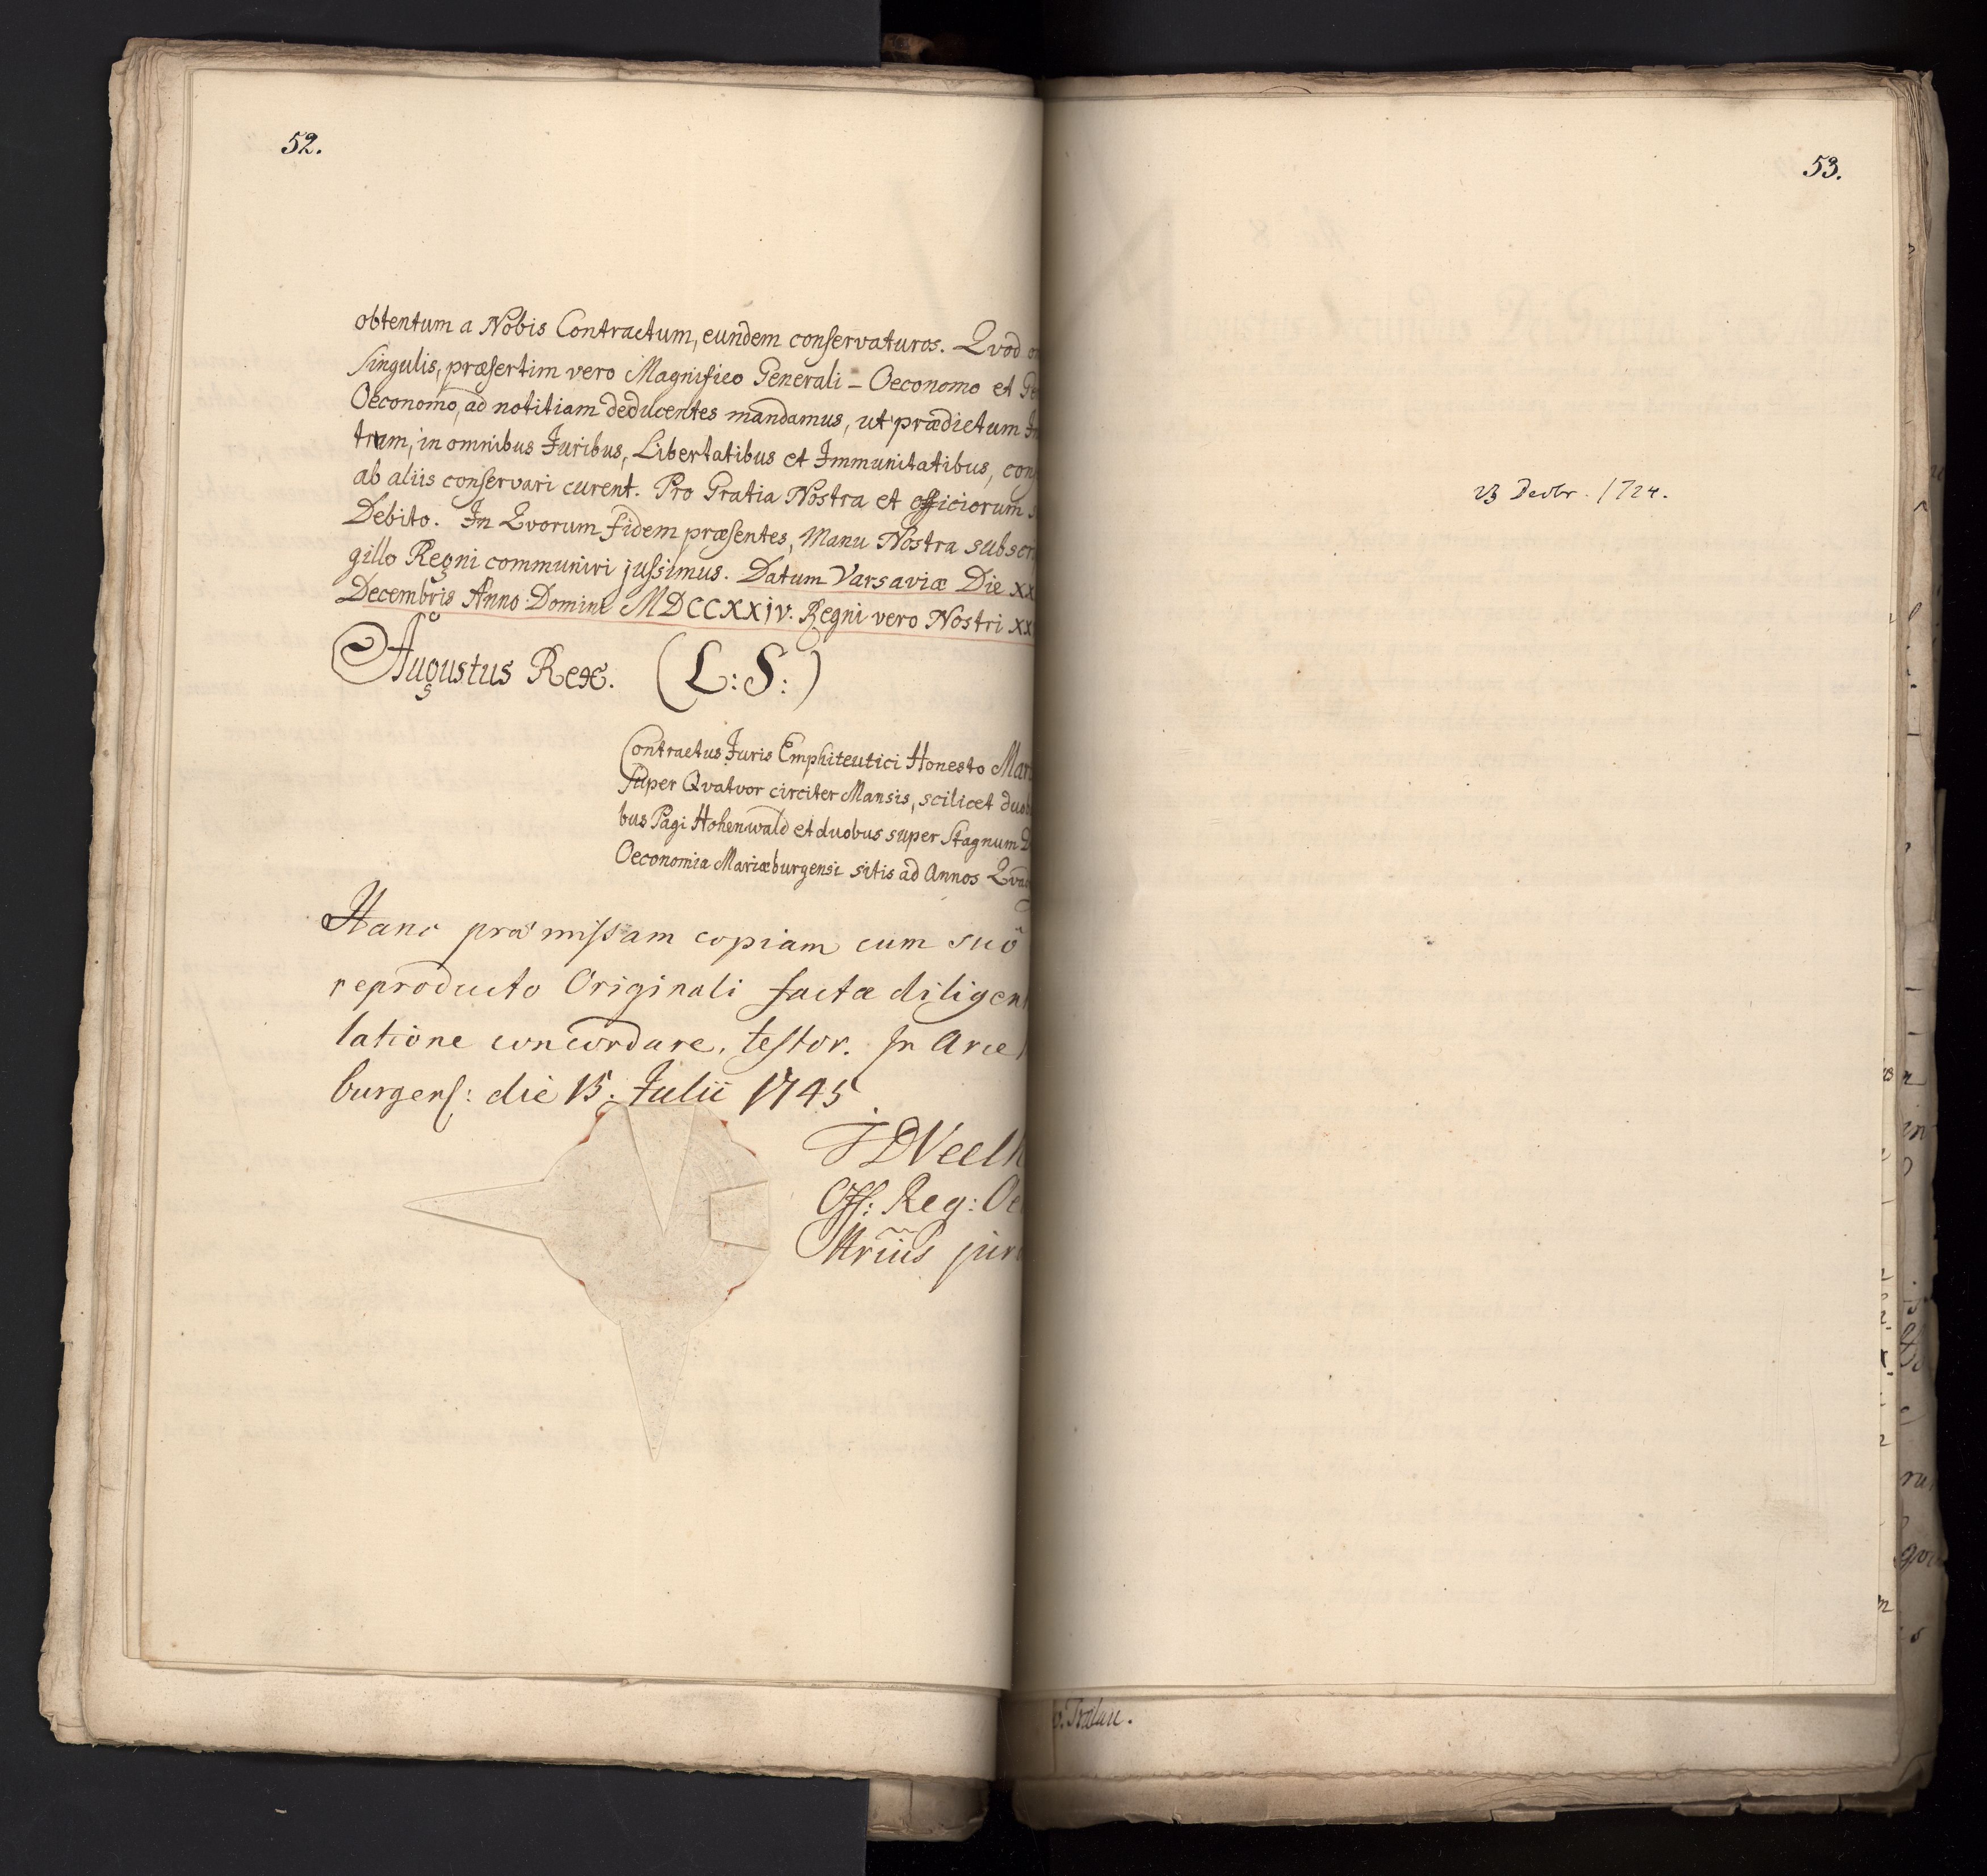 52.
obtentum a Nobis Contractum, eundem conservaturos. Qvod
Singulis, præsertim vero Magnifico Generali - Oeconomo et
Oeconomo, ad notitiam deducentes mandamus, ut prædictum
trum, in omnibus Juribus, Libertatibus et Immunitatibus,
ab aliis conservari curent. Pro Gratia Nostra et officiorum
Debito. In Qvorum fidem præsentes, Manu Nostra
gillo Regni communiri jussimus. Datum Varsaviæ Die
Decembris Anno Domini MDCCXXIV. Regni vero Nostri
Augustus Rex. (L:S:)
Contractus Juris Emphiteutici Honesto
super Qvatuor circiter Mansis, scilicet
bus Pagi Hohenwald et duobus super Stagnum
Oeconomia Mariæburgensi sitis ad Annos
Hanc præmissam copiam cum suô
reproducto Originali facta
latione concordare, testor. In Arce
burgens: die 15. Julii 1745
Off: Reg:
53.
23 Decbr. 1724.